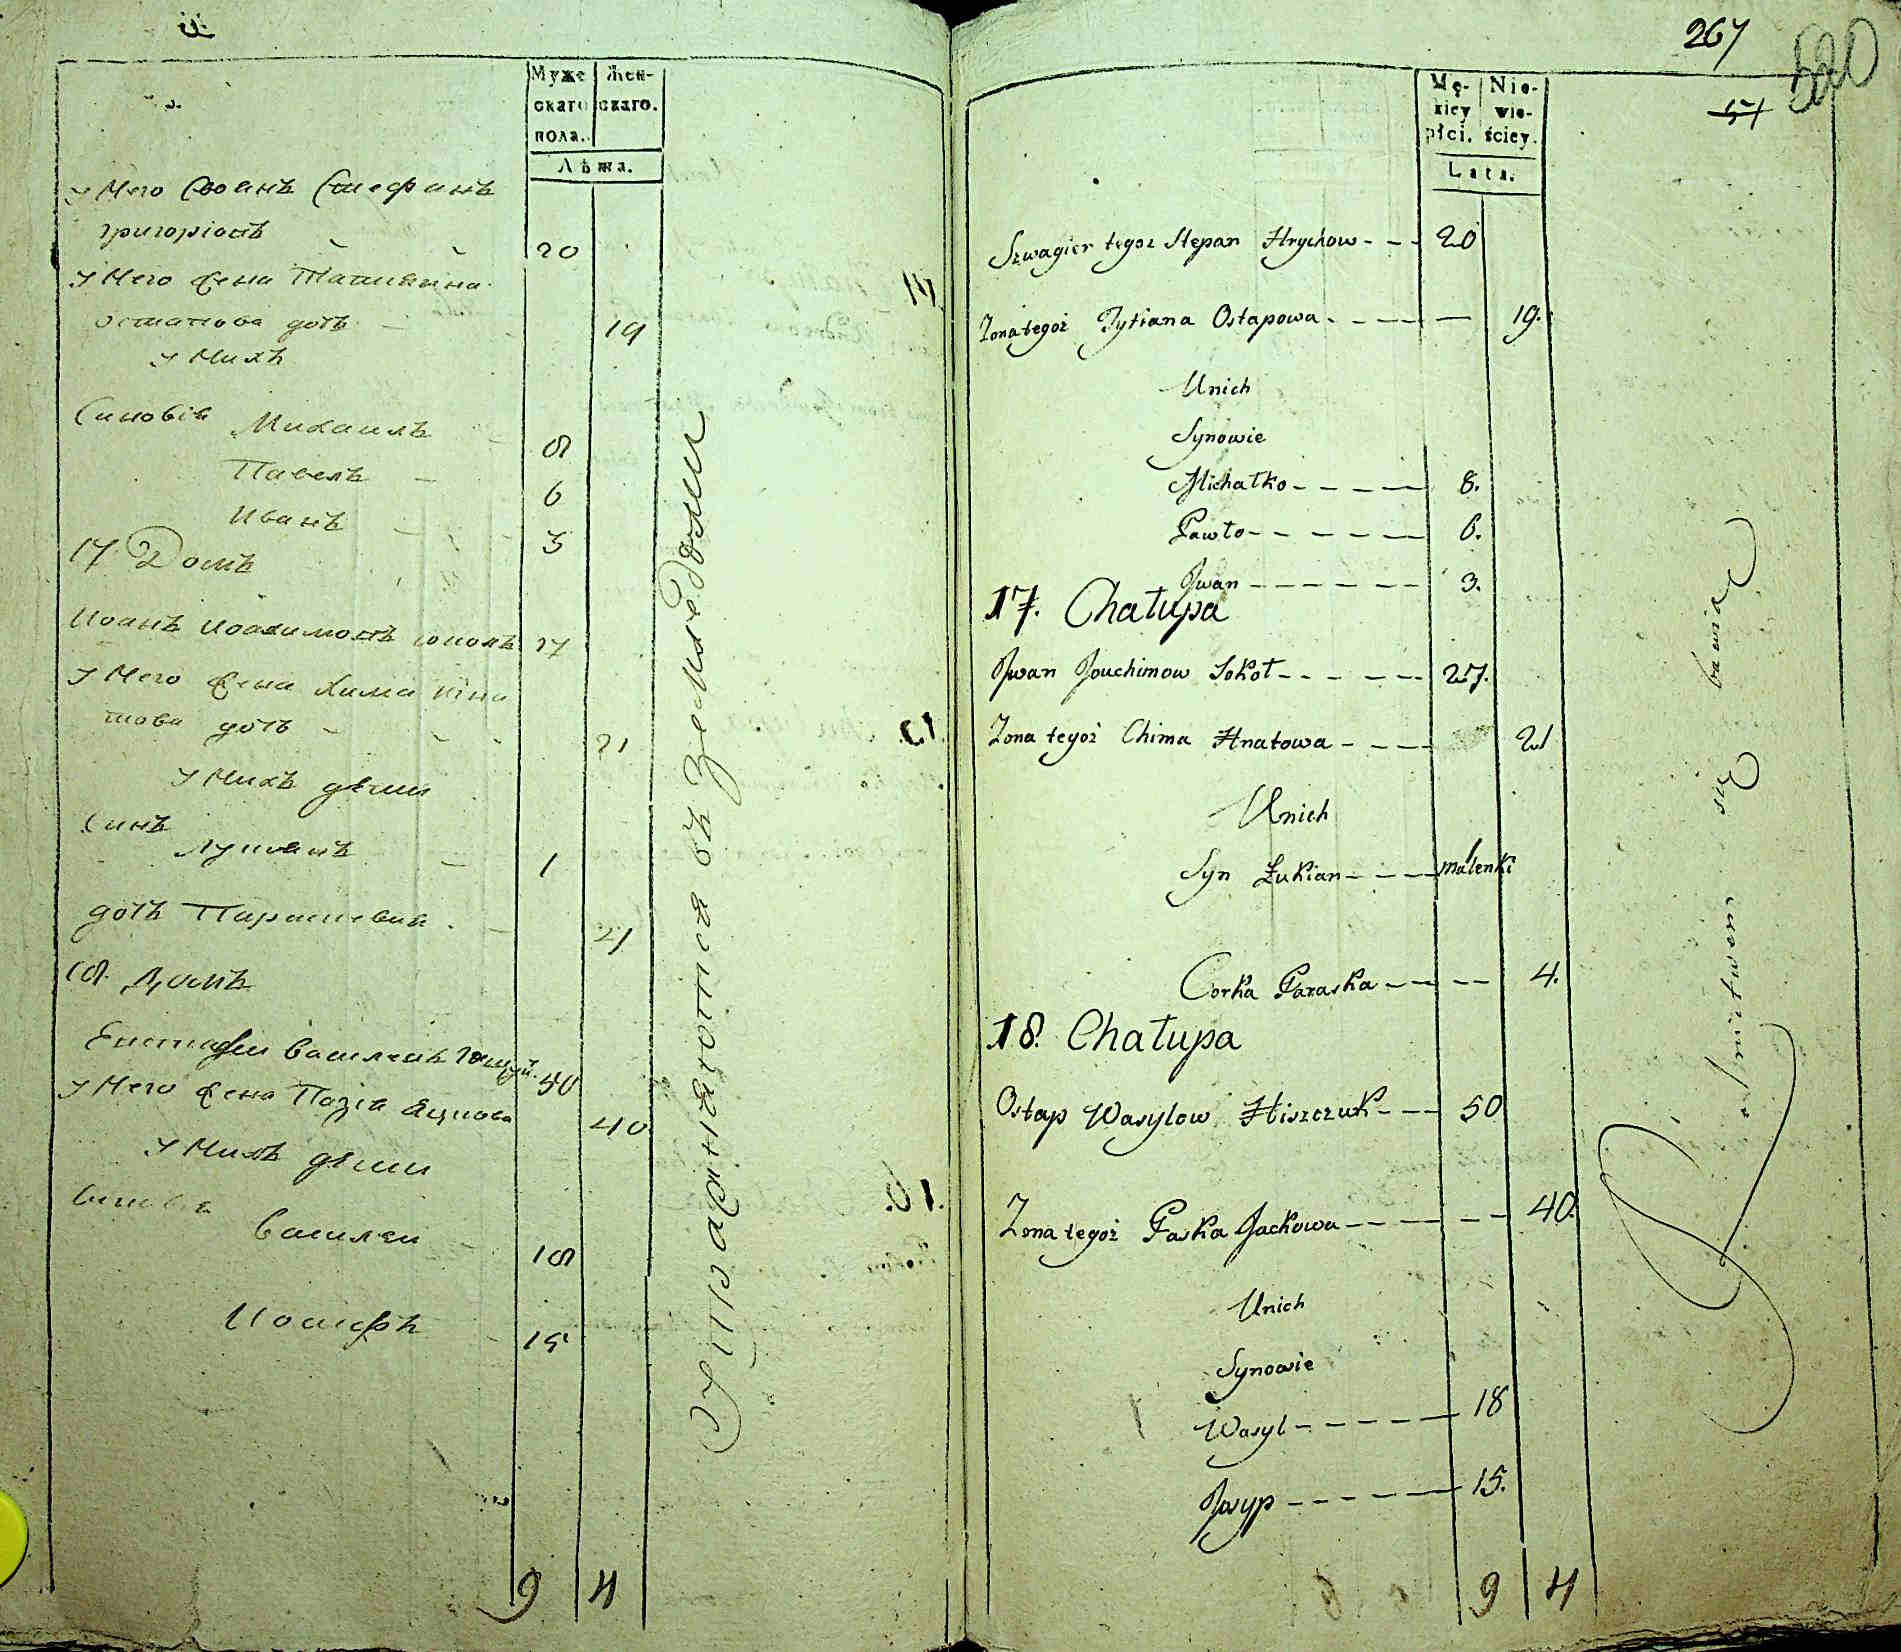 Муже
скаго
пола.
Жен-
скаго.
Лѣта.
У Него Своякъ Стефанъ
григоріовъ 20
У Него жена Татиянна
остапова дочъ 19
У Нихъ
Синовія Михаилъ 8
Павелъ 6
Иванъ 3
17 Домъ
Иоанъ Иоахимовъ соколъ 27
У Него жена Хима Игна
това дочъ 21
У Нихъ дѣти
Синъ
Лукианъ 1
дочъ Параскевия 4
18. Домъ
Евстафи Василевъ 50
У Него жена Пазія Яцкова 40
У Нихъ дѣти
Синовія
Василей 18
Иосифъ 15
9 4
Упражняются въ Земледоми
267
520
Mę-
zkiey
płci.
Nie-
wie-
ściey.
Lata.
Szwagier tegoz Stepan Hrychow - - - 20
Zona tegoż Tytiana Ostapowa - - - - 19.
Unich
Synowie
Michałko - - - - 8.
Pawło - - - - - 6.
Jwan - - - - - - 3.
17. Chałupa
Jwan Jouchimow Sokoł - - - - - 27.
Zona tegoż Chima Hnatowa - - - - 21
Unich
Syn Łukian - - - - malenki
Corka Paraska - - - - 4.
18. Chałupa
Ostap Wasylow Hiszczuk - - - 50
Zona tegoż Paska Jackowa - - - - - - 40.
Unich
Synowie
Wasyl - - - - - - 18
Josyp - - - - - - 15.
9 4
Rolnictwem się bawią